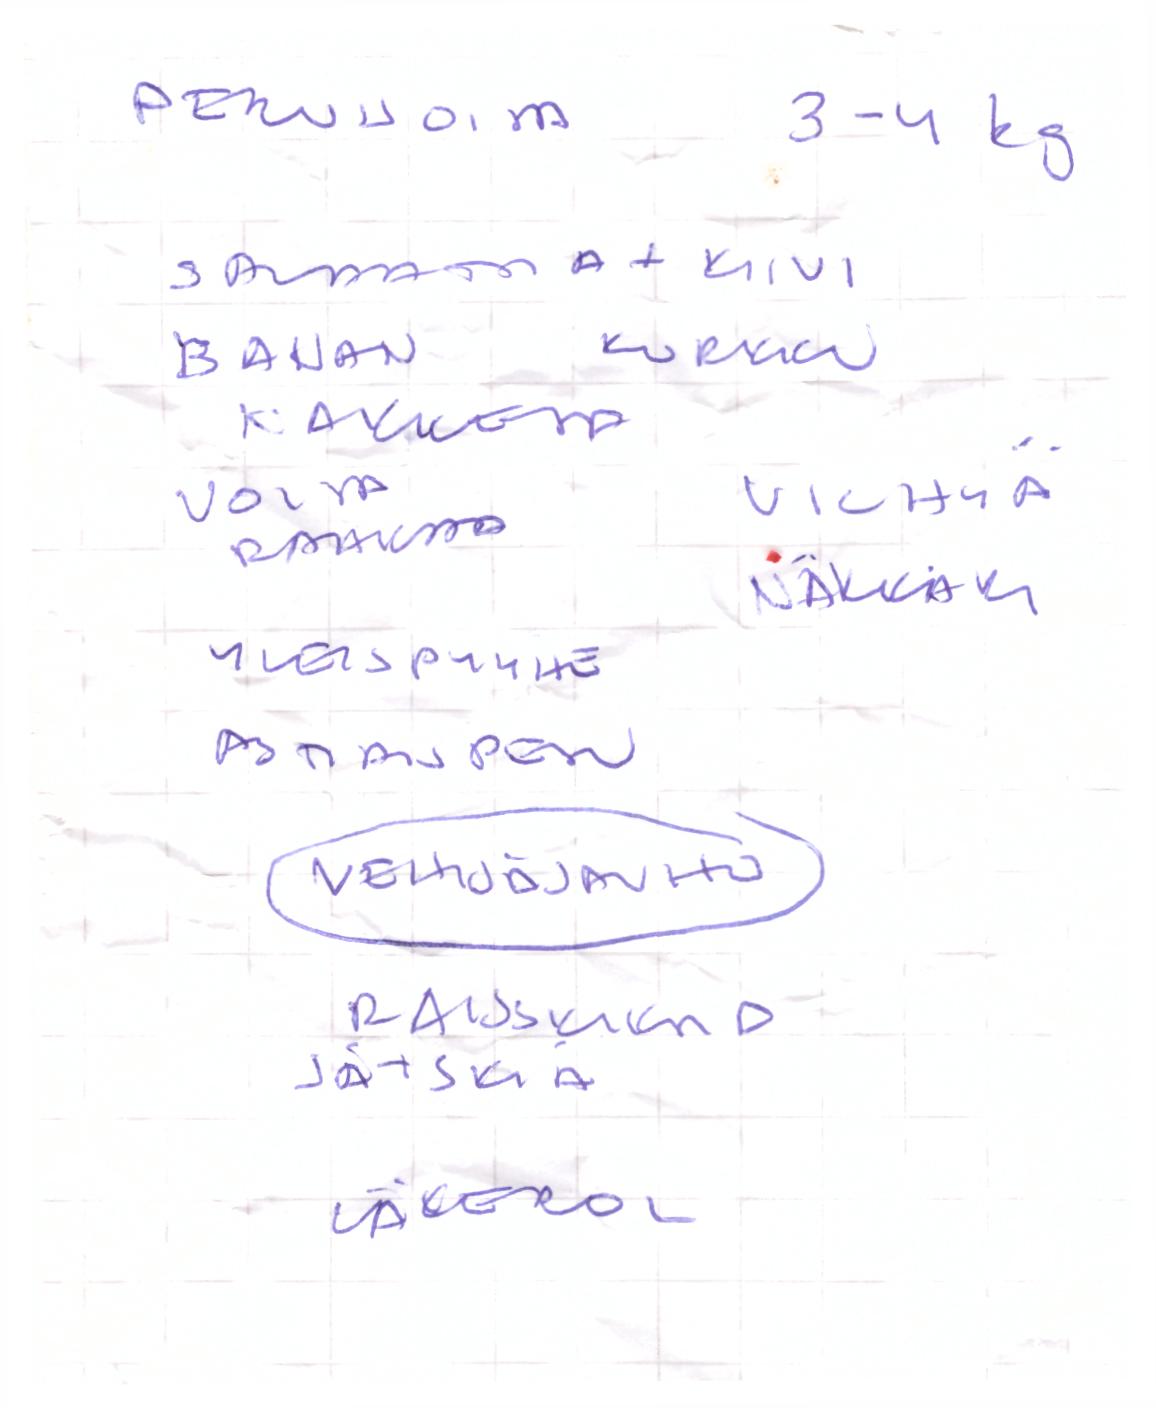 PERUNOITA 3-4 kg
SALAATTIA + KIIVI
BANAN KURKKU
KAKKERA
VOITA VICHYÄ
RAAKAA
NÄKKÄRI
YLEISPYYHE
ASTIANPESU
VEHNÄJAUHO
RAUSKIKAA
JÄTSKIÄ
LÄKEROL